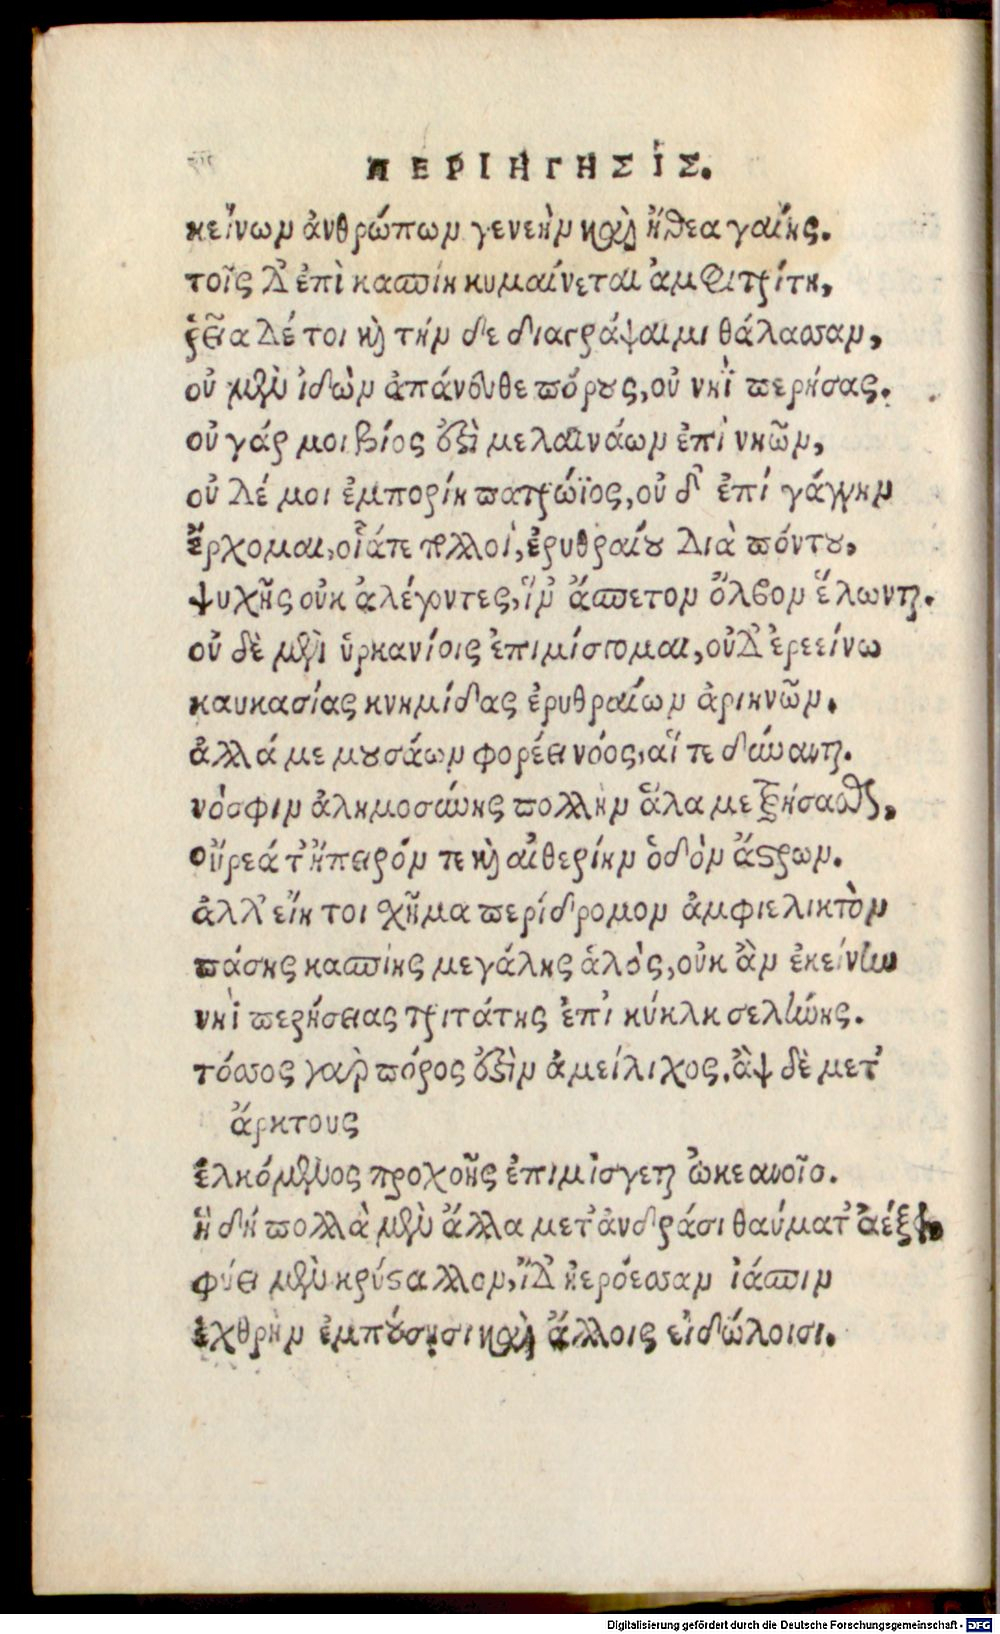 ΠΕΡΙΗΓΗΣΙΣ.
κείνων ἀνθρώπων γενεὴν καὶ ἤθεα γαίης.
τοῖς δ' ἐπὶ κασπίη κυμαίνεται ἀμφιτρίτη,
ῥεῖα δέ τοι καὶ τήν δε διαγράψαιμι θάλασσαν,
οὐ μὲν ἰδὼν ἀπάνευθε πόρους, οὐ νηῒ περήσας.
οὐ γάρ μοι βίος ἐστὶ μελαινάων ἐπὶ νηῶν,
οὐ δέ μοι ἐμπορίη πατρώϊος, οὐ δ' ἐπί γάγγην
ἔρχομαι, οἷάπε πολλοὶ, ἐρυθραίου διὰ πόντου,
ψυχῆς οὐκ ἀλέγοντες, ἵν' ἄσπετον ὄλβον ἕλωνται.
οὐ δὲ μὲν ὑρκανίοις ἐπιμίσγομαι, οὐδ' ἐρεείνω
καυκασίας κνημίδας ἐρυθραίων ἀριηνῶν.
ἀλλά με μουσάων φορέει νόος, αἵ τε δύνανται.
νόσφιν ἀλημοσύνης πολλὴν ἅλα μετρήσασθαι,
οὔρεά τ' ἤπειρόν τε καὶ αἰθερίην ὁδὸν ἄστρων.
ἀλλ' εἴη τοι σχῆμα περίδρομον ἀμφιελικτὸν
πάσης κασπίης μεγάλης ἁλὸς, οὐκ ἂν ἐκείνην
νηῒ περήσειας τριτάτης ἐπὶ κύκλῃ σελήνης.
τόσσος γὰρ πόρος ἐστὶν ἀμείλιχος, ἂψ δὲ μετ'
ἄρκτους
ἑλκόμενος προχοῆς ἐπιμίσγεται ὠκεανοῖο.
ἣ δή πολλὰ μὲν ἄλλα μετ' ἀνδράσι θαύματ' ἀέξει.
φύει μὲν κρύσταλλον, ἰδ' ἠερόεσσαν ἰάσπιν
ἐχθρὴν ἐμπούσῃσι καὶ ἄλλοις εἰδώλοισι.
Digitalisierung gefördert durch die Deutsche Forschungsgemeinschaft - DFG